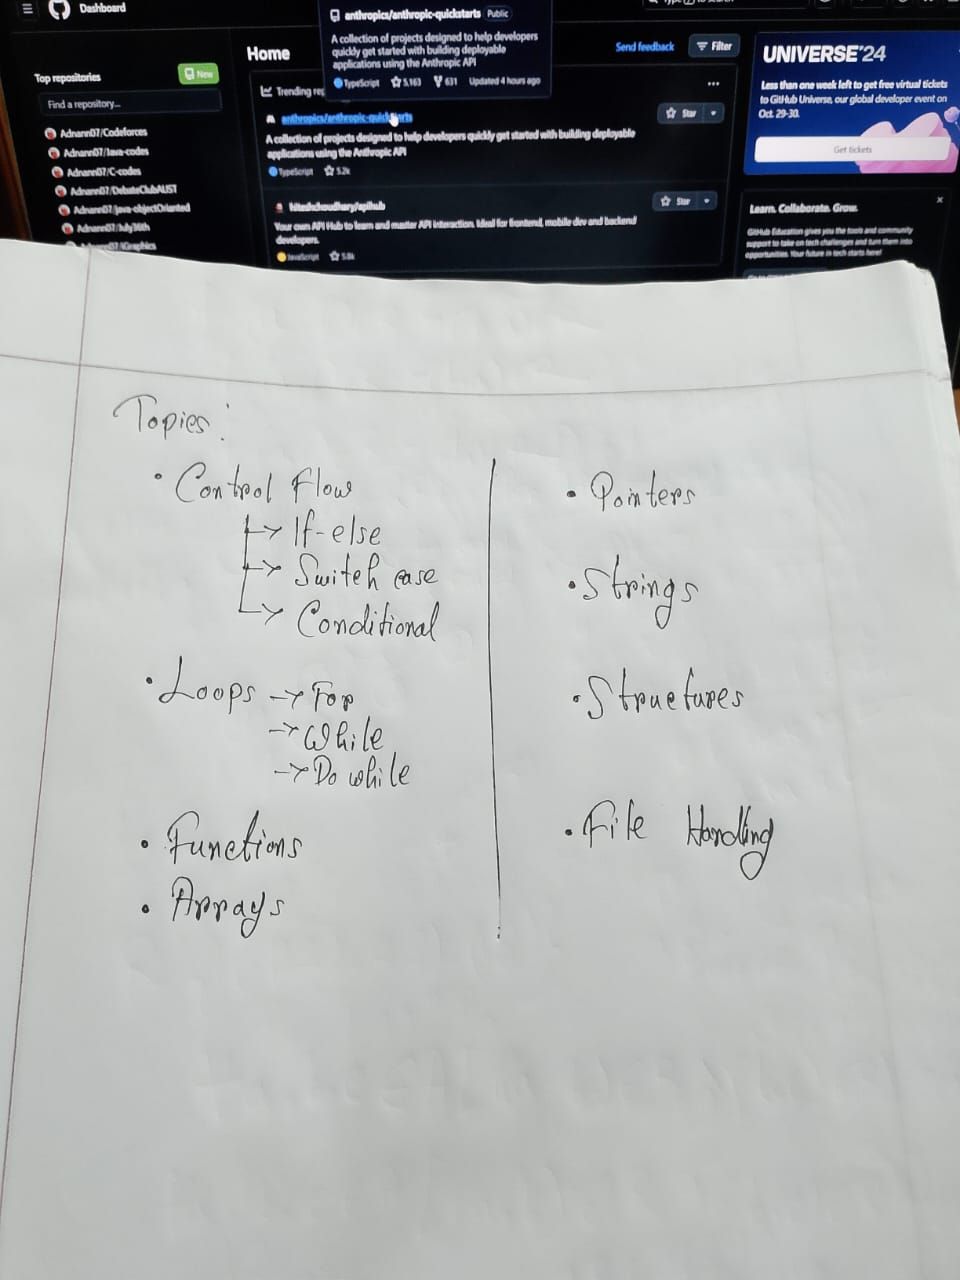 Dashboard
anthropics/anthropic-quickstarts Public
A collection of projects designed to help developers
quickly get started with building deployable
applications using the Anthropic API
TypeScript 5,163 631 Updated 4 hours ago
Top repositories
New
Find a repository...
Adnann07/Codeforces
Adnann07/Java-codes
Adnann07/C-codes
Adnann07/DebateClubAUST
Adnann07/java-objectOrianted
Adnann07/July36th
Home
Send feedback
Filter
Trending
anthropics/anthropic-quickstarts
Star
A collection of projects designed to help developers quickly get started with building deployable
applications using the Anthropic API
TypeScript 5.2k
hiteshchoudhary/apihub
Star
Your own API Hub to learn and master API interaction. Ideal for frontend, mobile dev and backend
developers.
JavaScript 5.8k
UNIVERSE'24
Less than one week left to get free virtual tickets
to GitHub Universe, our global developer event on
Oct. 29-30.
Get tickets
Learn. Collaborate. Grow.
GitHub Education gives you the tools and community
support to take on tech challenges and turn them into
opportunities. Your future in tech starts here!
Topics:
• Control Flow
→ If-else
→ Switch case
→ Conditional
• Loops → For
→ While
→ Do while
• Functions
• Arrays
• Pointers
• Strings
• Structures
• File Handling